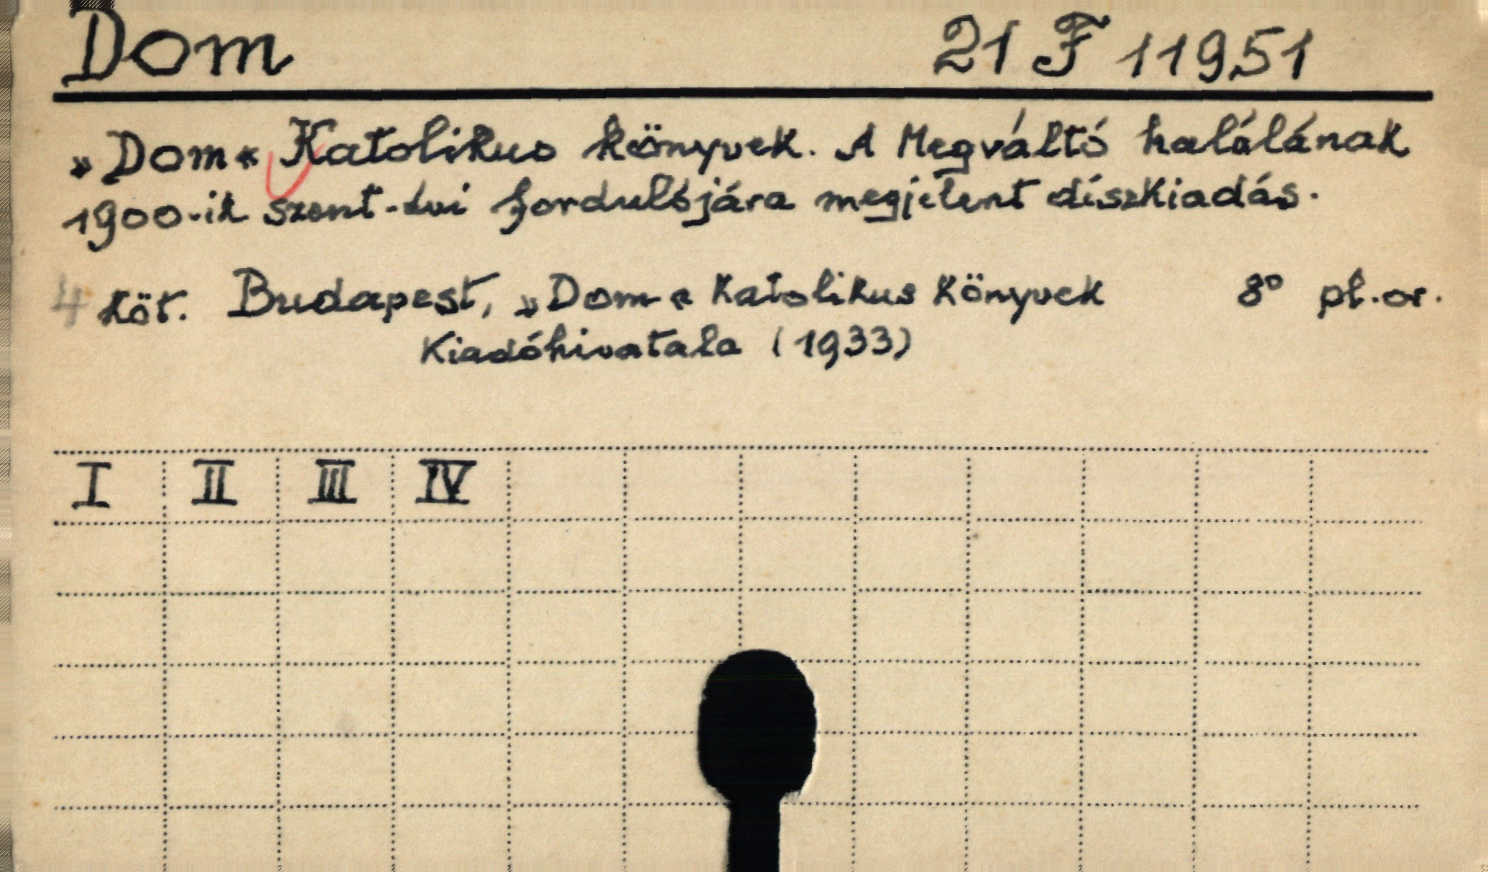 Dom 21 F 11951
„Dom“ Katolikus könyvek. A Megváltó halálának
1900-ik szent-évi fordulójára megjelent díszkiadás.
4 köt. Budapest, „Dom“ Katolikus Könyvek 8° pl. or.
Kiadóhivatala (1933)
I II III IV